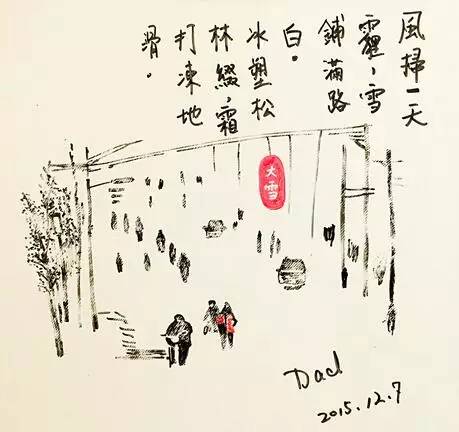 風掃一天
霾、雪
鋪滿路
白。
冰塑松
林綴、霜
打凍地
滑。
大雪
Dad
2015.12.7